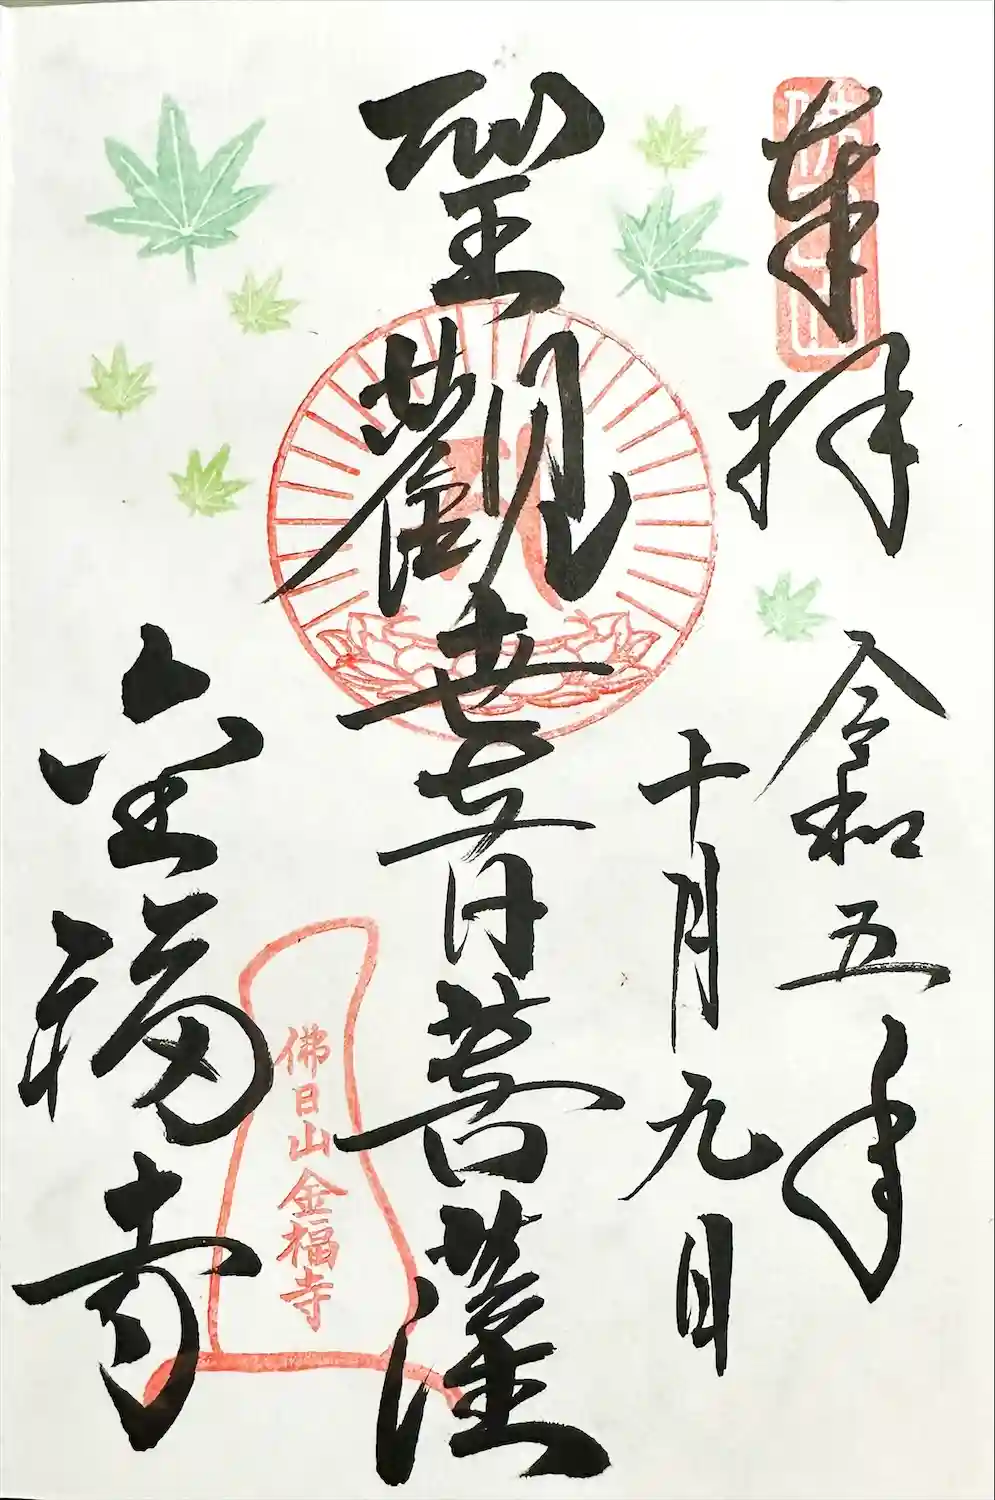 奉拝
佛日山
令和五年
十月九日
聖觀世音菩薩
金福寺
佛日山金福寺